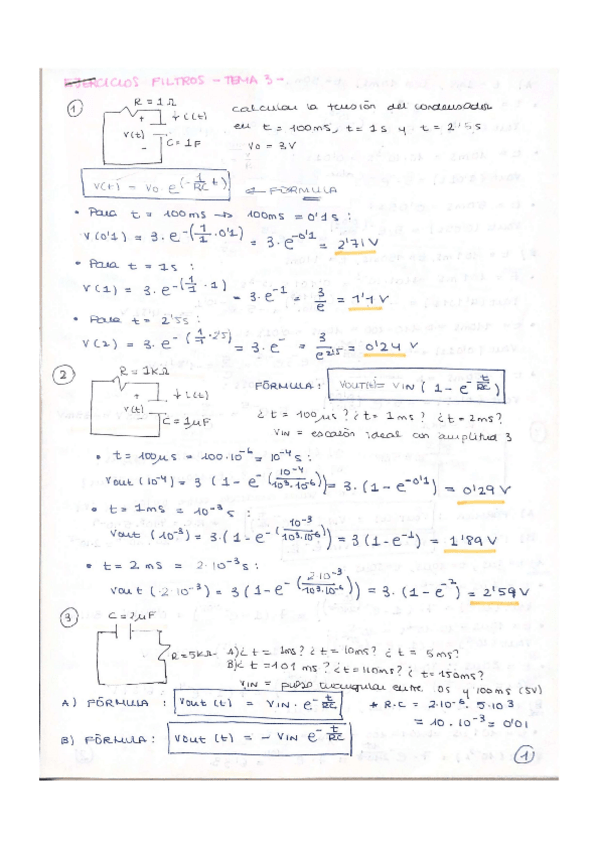 EJERCICIOS FILTROS - TEMA 3 -.
① R = 1Ω calcular la tensión del condensador
+ ↓ i(t) en t = 100ms, t = 1s y t = 2's s
V(t) C = 1F V0 = 3V
-
V(t) = V0 · e^(-1/RC t) ← FÓRMULA
• Para t = 100ms → 100ms = 0'1s :
V(0'1) = 3 · e^-(1/1 · 0'1) = 3 · e^-0'1 = 2'71 V
• Para t = 1s :
V(1) = 3 · e^-(1/1 · 1) = 3 · e^-1 = 3/e = 1'1 V
• Para t = 2'5s :
V(2) = 3 · e^-(1/1 · 2'5) = 3 · e^- = 3/e^2'5 = 0'24 V
② R = 1KΩ
+ ↓ i(t) FÓRMULA : Vout(t) = VIN (1 - e^-t/RC)
V(t) C = 1μF ¿t = 100μs? ¿t = 1ms? ¿t = 2ms?
- VIN = escalón ideal con amplitud 3
• t = 100μs = 100·10^-6 = 10^-4 s :
Vout (10^-4) = 3 (1 - e^-(10^-4/10^3·10^-6)) = 3 · (1 - e^-0'1) = 0'29 V
• t = 1ms = 10^-3 s :
Vout (10^-3) = 3 · (1 - e^-(10^-3/10^3·10^-6)) = 3 (1 - e^-1) = 1'89 V
• t = 2 ms = 2·10^-3 s :
Vout (2·10^-3) = 3 (1 - e^-(2·10^-3/10^3·10^-6)) = 3 · (1 - e^-2) = 2'59 V
③ C = 2μF
R = 5KΩ A) ¿t = 1ms? ¿t = 10ms? ¿t = 5ms?
B) ¿t = 101 ms? ¿t = 110ms? ¿t = 150ms?
VIN = pulso rectangular entre 0s y 100ms (5V)
A) FÓRMULA : Vout (t) = VIN · e^-t/RC * R·C = 2·10^-6 · 5·10^3
= 10 · 10^-3 = 0'01
B) FÓRMULA : Vout (t) = - VIN e^-t/RC
①